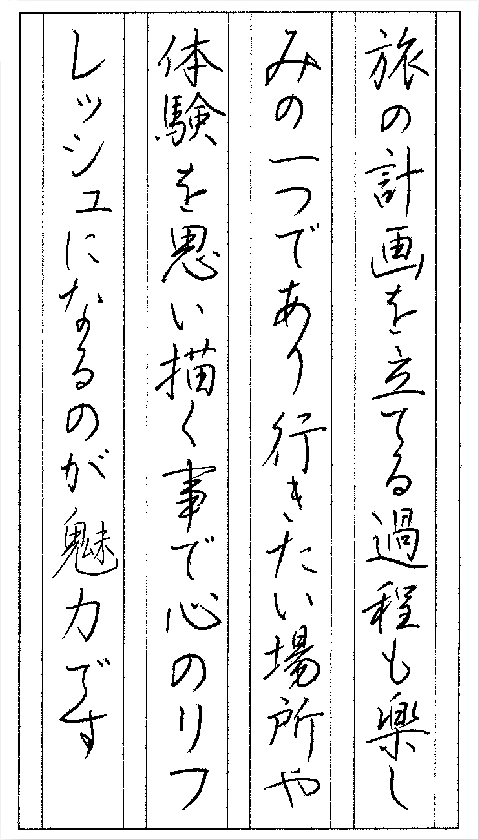 旅の計画を立てる過程も楽し
みの一つであり行きたい場所や
体験を思い描く事で心のリフ
レッシュになるのが魅力です